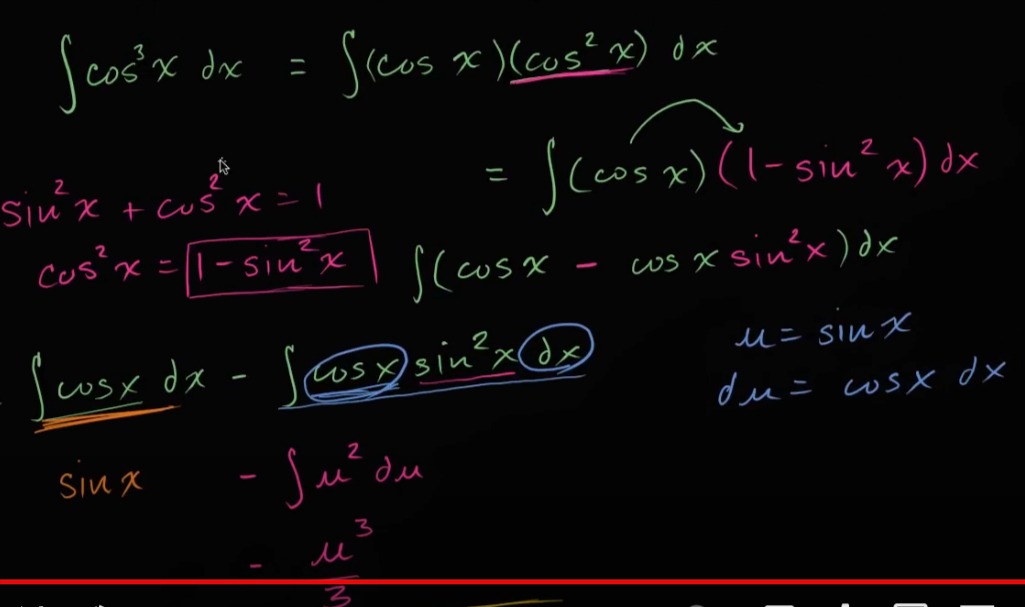 ∫cos³x dx = ∫(cos x)(cos²x) dx
= ∫(cos x)(1-sin²x)dx
sin²x + cos²x = 1
cos²x = 1-sin²x
∫(cosx - cos x sin²x)dx
u = sin x
du = cosx dx
∫cosx dx - ∫cosx sin²x dx
sin x - ∫u² du
- u³/3